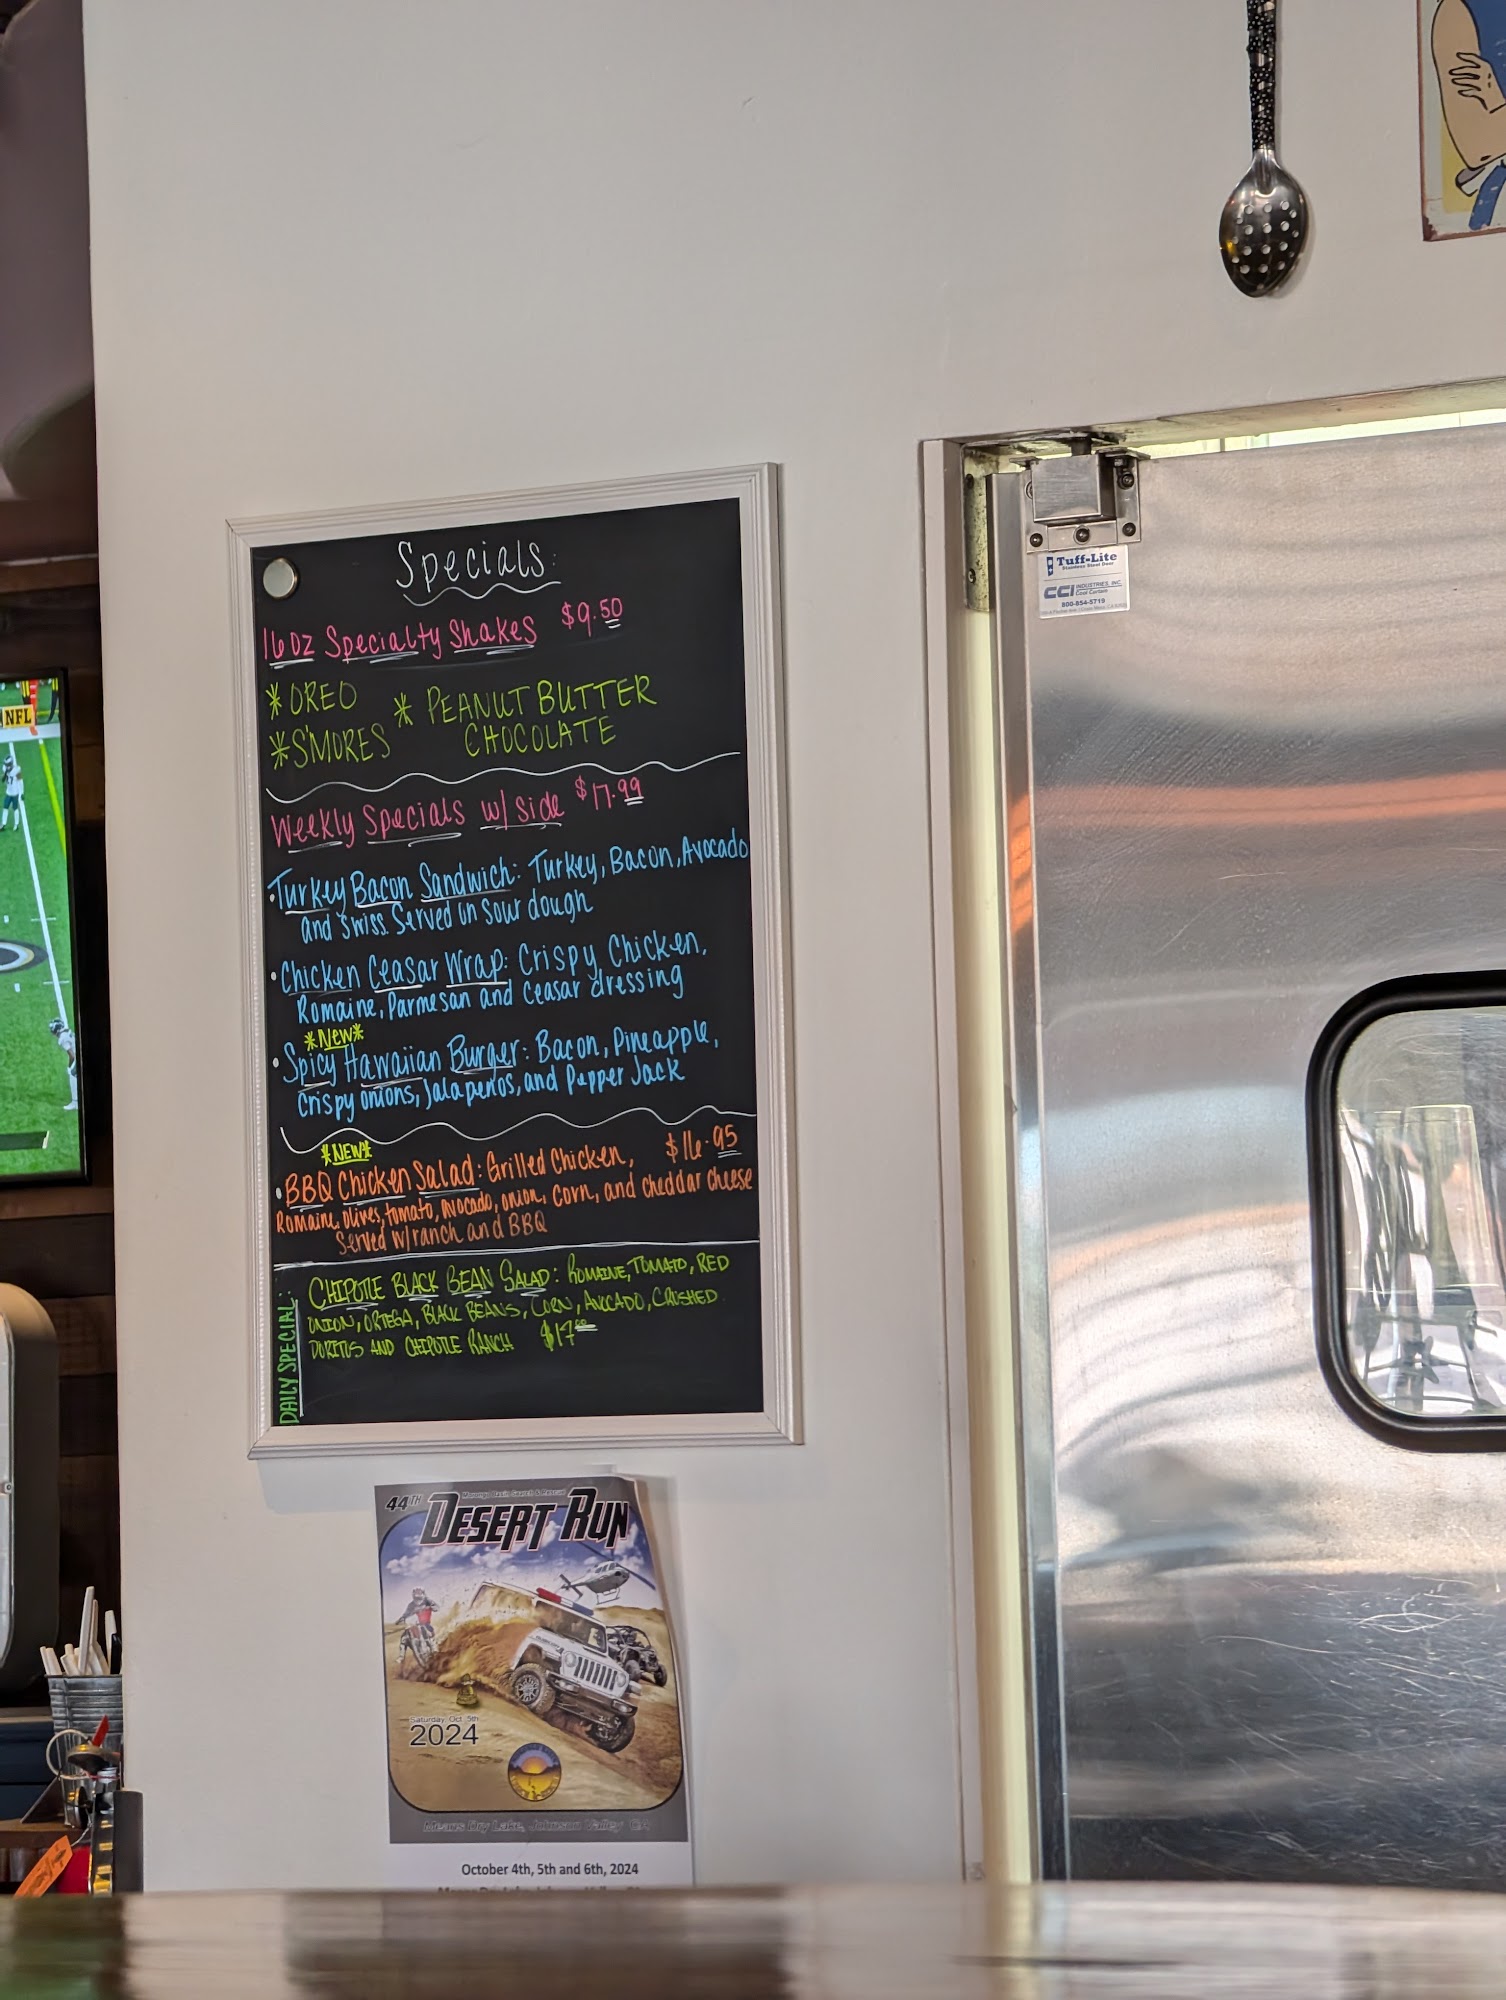 Specials:
16oz Specialty Shakes $9.50
*OREO
*S'MORES
* PEANUT BUTTER
CHOCOLATE
Weekly Specials w/ side $17.99
• Turkey Bacon Sandwich: Turkey, Bacon, Avocado
and Swiss. Served on Sour dough
• Chicken Ceasar Wrap: Crispy Chicken,
Romaine, Parmesan and Ceasar dressing
*New*
• Spicy Hawaiian Burger: Bacon, Pineapple,
Crispy onions, Jalapeños, and Pepper Jack
*NEW*
• BBQ Chicken Salad: Grilled Chicken, $16.95
Romaine, olives, tomato, avocado, onion, corn, and cheddar cheese
Served w/ranch and BBQ
DAILY SPECIAL:
CHIPOTLE BLACK BEAN SALAD: ROMAINE, TOMATO, RED
ONION, ORTEGA, BLACK BEANS, CORN, AVOCADO, CRUSHED
DORITOS AND CHIPOTLE RANCH $17
NFL
Tuff-Lite
Stainless Steel Door
CCI INDUSTRIES, INC.
Cool Curtain
800-854-5719
Morongo Basin Search & Rescue
44TH DESERT RUN
Saturday, Oct. 5th
2024
Means Dry Lake, Johnson Valley CA
October 4th, 5th and 6th, 2024